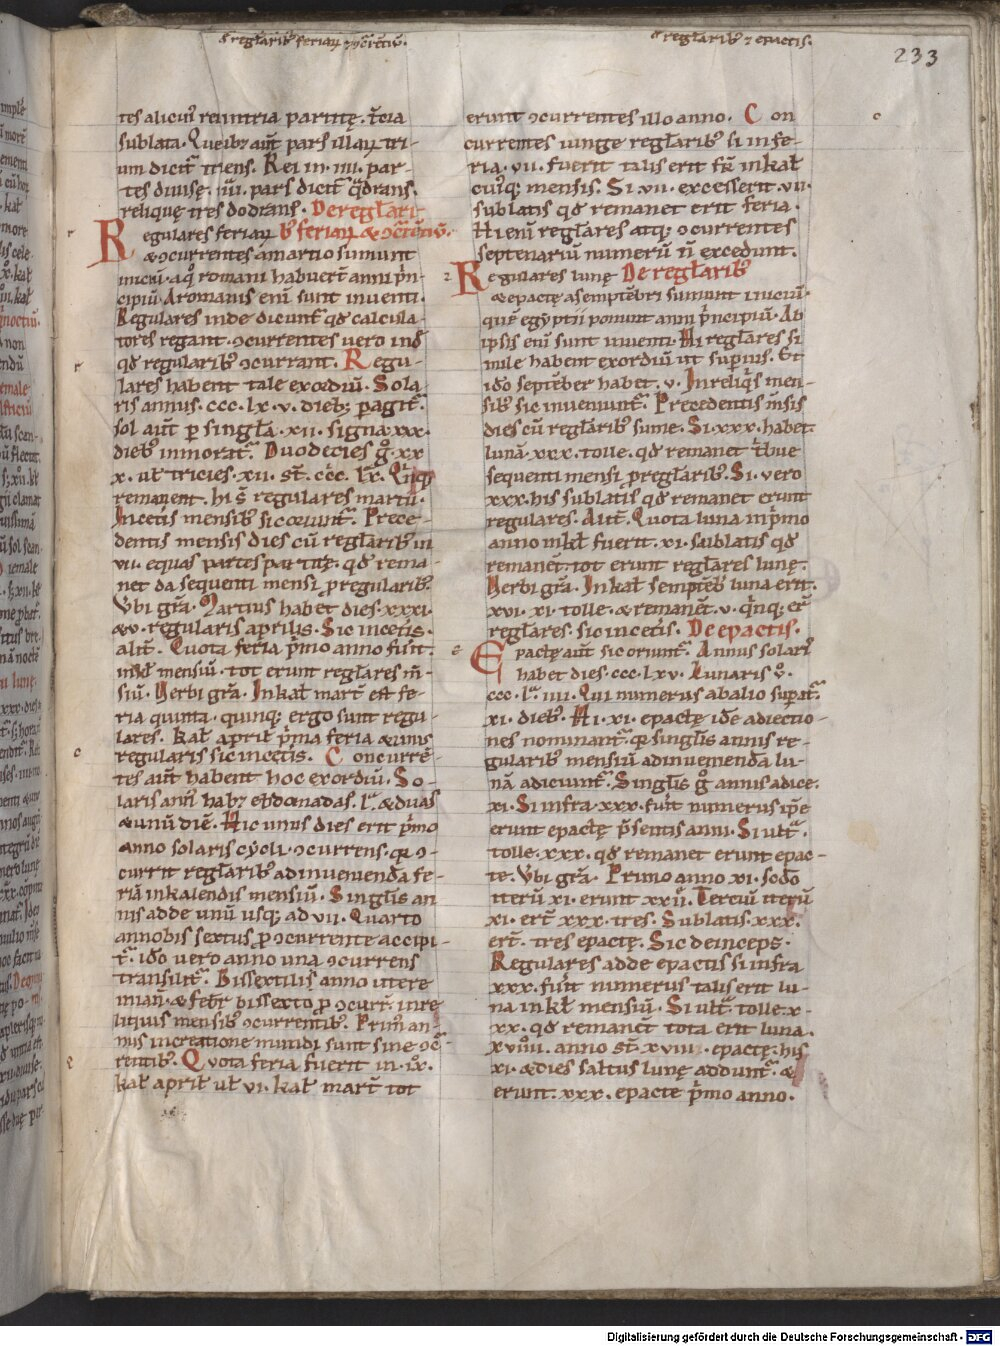 d̄ regłarib; feriaꝝ ⁊ ꝯcr̄entiū.
d̄ regłarib; ⁊ epactis.
233
tes alicui᷒ rei in tria partitę. t̄cia
sublata. Queib; aut̄ pars illaꝝ tri-
um dicit᷑ triens. Rei in .iiii. par-
tes diuisę. iiii. pars dicit᷑ q̄drans.
reliquę tres dodrans. De regłari
Regulares feriaꝝ b; feriaꝝ & ꝯcr̄entiū.
& ꝯcurrentes a martio sumunt
iniciū. a quo romani habuer̄t anni p̄n-
cipiū. A romanis enī sunt inuenti.
Regulares inde dicunt᷑ qđ calcula-
tores regant. ꝯcurrentes uero inđ
qđ regularib; ꝯcurrant. Regu-
lares habent tale exordiū. Sola
ris annus .ccc. lx. v. dieb; peragit᷑.
sol aut̄ p singła .xii. signa .xxx.
dieb; inmorat᷑. Duodecies g̊ .xx
x. uł tricies .xii. st̄ .ccc. lx. Quinq;
remanent. hi s̄ regulares martii.
In cetis mensib; sic oriunt᷑. Prece-
dentis mensis dies cū regłarib; in
vii. equas partes partitę. qđ rema-
net da sequenti mensi p regularib;.
Vbi gr̄a. Martius habet dies .xxxi.
& v. regularis aprilis. Sic in cetis.
alit̄. Quota feria p̄mo anno fuit.
in kł mensiū. tot erunt regłares m̄-
siū. Uerbi gr̄a. In kał mart̄ est fe-
ria quinta. quinq; ergo sunt regu-
lares. Kał april̄ p̄ma feria & unus
regularis sic in cetis. Concurrē-
tes aut̄ habent hoc exordiū. So-
laris ann᷒ hab; ebdomadas .l. & duas
& unū diē. Hic unus dies erit p̄mo
anno solaris cycli. ꝯcurrens. quia ꝯ-
currit regłarib; ad inueniendā fe-
riā in kalendis mensiū. Singłis an
nis adde unū usq; ad vii. Quarto
anno bis sextus p ꝯcurrente accipi-
t᷑. iđo uero anno una ꝯcurrens
transilit᷑. Bissextilis anno utere
in ian̄. & febr̄ bissexto p ꝯcurr̄. in re
liquis mensib; ꝯcurrentib;. Prim᷒ an-
nus in creatione mundi sunt sine ꝯc̄-
rentib;. Quota feria fuerit in .ix.
kał april̄ uł vi. kał mart̄ tot
erunt ꝯcurrentes illo anno. Con
currentes iunge regłarib; si infe-
ria .vii. fuerit talis erit f̄ia in kał
cui᷒q; mensis. Si .vii. excesserit .vii.
sublatis qđ remanet erit feria.
Hi enī regłares atq; ꝯcurrentes
septenariū numerū n̄ excedunt.
Regulares lunę De regłarib;
& epactę a septēbri sumunt iniciū.
quē egyptii ponunt anni p̄ncipiū. Ab
ipsis enī sunt inuenti. Hi regłares si
mile habent exordiū ut superius. Et
iđo septēber habet .v. In reliq̄s men-
sib; sic inueniunt᷑. Precedentis m̄sis
dies cū regłarib; sume. Si .xxx. habet
lunā .xxx. tolle. qđ remanet t̄bue
sequenti mensi p regłarib;. Si uero
xxx. his sublatis qđ remanet erunt
regulares. Alit̄. Quota luna in p̄mo
anno in kł fuerit. xi. sublatis qđ
remanet. tot erunt regłares lunę.
Uerbi gr̄a. In kał septēb luna erit.
xvi. xi. tolle. & remanēt .v. q̄nq; er̄
regłares. sic in cetis. De epactis.
Epactę aut̄ sic oriunt᷑. Annus solaris
habet dies .ccc. lxv. Lunaris v̊.
ccc. l. iiii. Qui numerus ab alio superat᷑
xi. dieb;. Hi .xi. epactę iđe adiectio-
nes nominant᷑. quia singłis annis re-
gularib; mensiū ad inueniendā lu-
nā adiciunt᷑. Singłis g̊ annis adice.
xi. Si infra .xxx. fuit numerus ip̄e
erunt epactę p̄sentis anni. Si ult᷑.
tolle .xxx. qđ remanet erunt epac-
te. Vbi gr̄a. Primo anno xi. sc̄do
iterū xi. erunt xxii. Tercio iterū
xi. er̄t xxx. tres. Sublatis .xxx.
er̄t tres epactę. Sic deinceps.
Regulares adde epactis si infra
xxx. fuit numerus talis erit lu-
na in kł mensiū. Si ult᷑ tolle x-
xx. qđ remanet tota erit luna.
xviiii. anno st̄ xviii. epactę. his
xi. & dies saltus lunę addunt᷑. &
erunt .xxx. epacte p̄mo anno.
Digitalisierung gefördert durch die Deutsche Forschungsgemeinschaft - DFG